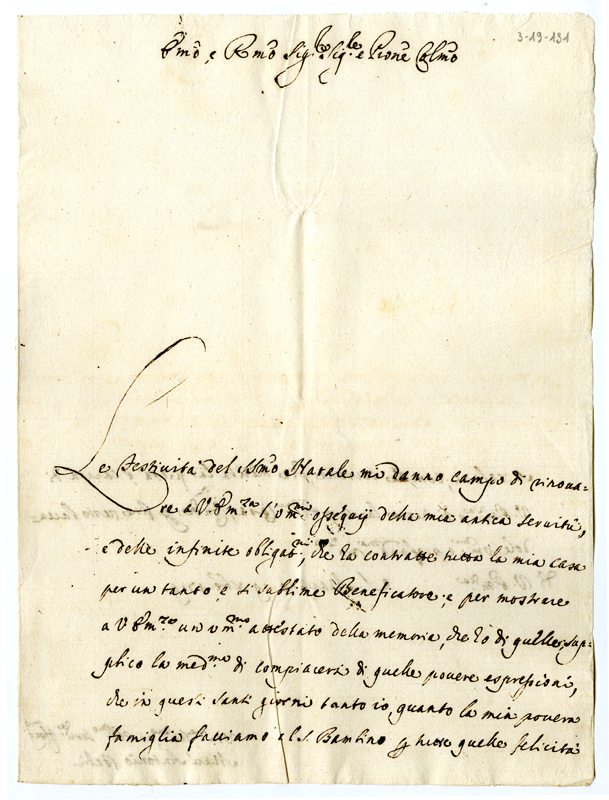 3-19-131
Emo, e Rmo Sig.re Sig.le e Prone Colmo
Le Festività del SSmo Natale mi danno campo di rinova-
re a V Em.za l'um.mi essequij della mia antica servitù,
e delle infinite obligaz.ni, che ha contratte tutta la mia casa
per un tanto, e sì sublime Beneficatore; e per mostrare
a V Em.za un um.mo attestato della memoria, che hò di quelle, sup-
plico la med.ma di compiacersi di quelle povere espressioni,
che in questi santi giorni tanto io, quanto la mia povera
famiglia facciamo al S. Bambino p tutte quelle felicità